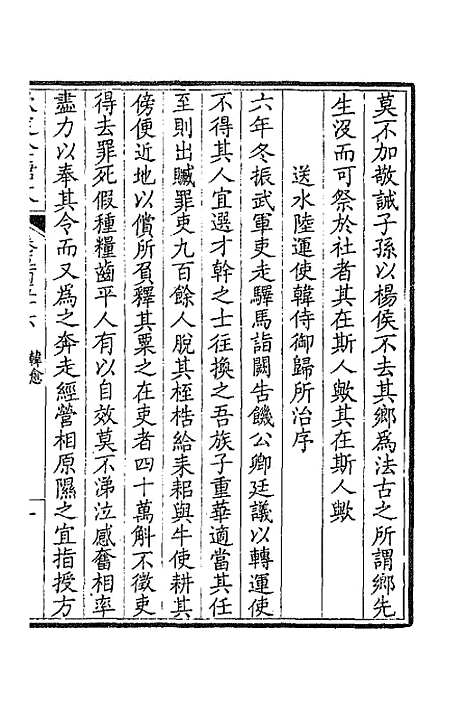 莫不加敬誠子孫以楊侯不去其鄉為法古之所謂鄉先
生沒而可祭於社者其在斯人歟其在斯人歟
送水陸運使韓侍御歸所治序
六年冬振武軍吏走驛馬詣闕告饑公卿廷議以轉運使
不得其人宜選才幹之士往換之吾族子重華適當其任
至則出贓罪吏九百餘人脫其桎梏給耒耜與牛使耕其
傍便近地以償所負釋其粟之在吏者四十萬斛不徵吏
得去罪死假種糧齒平人有以自效莫不涕泣感奮相率
盡力以奉其令而又為之奔走經營相原隰之宜指授方
韓愈